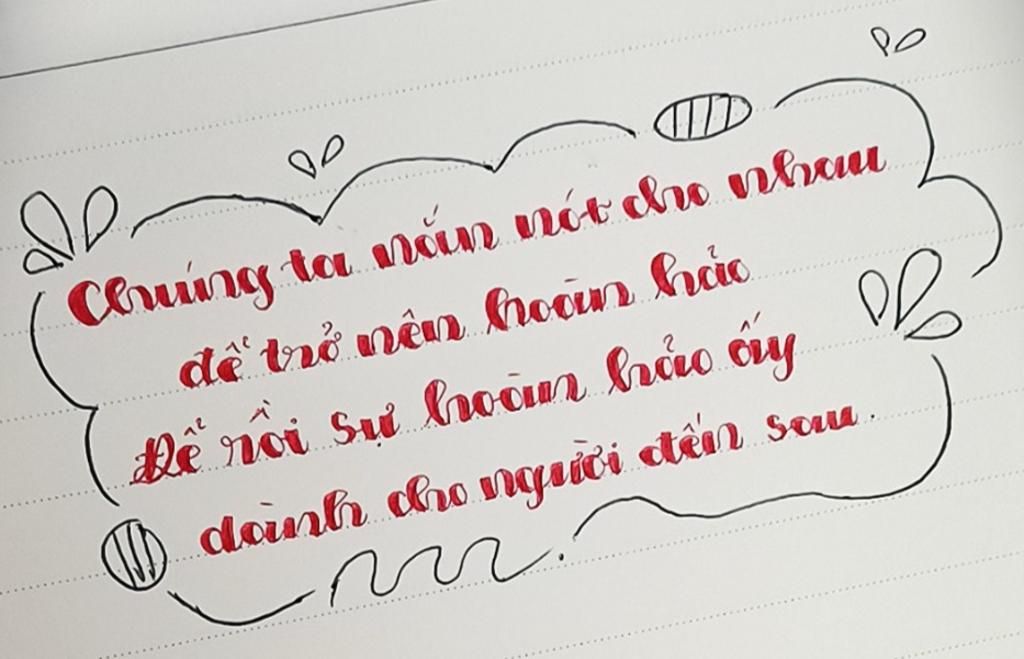 Chúng ta nắn nót cho nhau
để trở nên hoàn hảo
Để rồi sự hoàn hảo ấy
dành cho người đến sau.